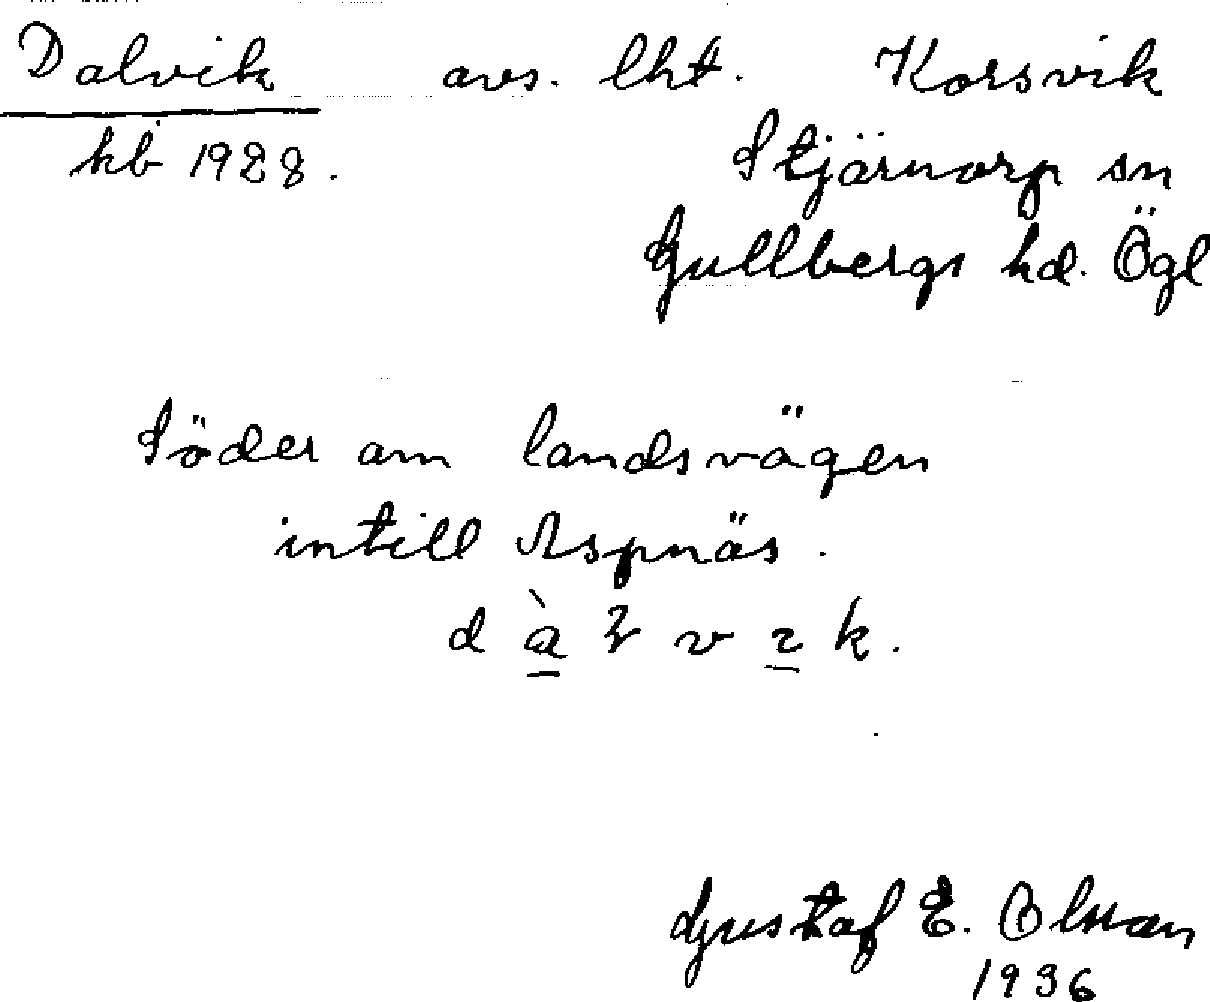 Dalvik avs. lht. Korsvik
kb 1928. Stjärnorp sn
Gullbergs hd. Ögl
Söder om landsvägen
intill Aspnäs.
Gustaf E. Olson
1936